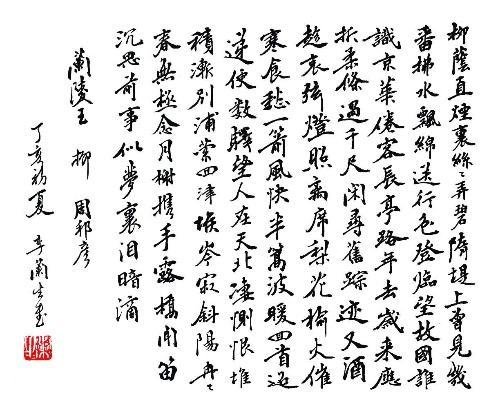 柳蔭直煙裏絲々弄碧隋堤上曾見幾
番拂水飄綿送行色登臨望故國誰
識京華倦客長亭路年去歲來應
折柔條過千尺閑尋舊踪迹又酒
趁哀弦燈照離席梨花榆火催
寒食愁一箭風快半篙波暖回首迢
遞便數驛望人在天北悽惻恨堆
積漸別浦縈回津堠岑寂斜陽冉々
春無極念月榭携手露橋聞笛
沉思前事似夢裏泪暗滴
蘭陵王 柳 周邦彦
丁亥初夏